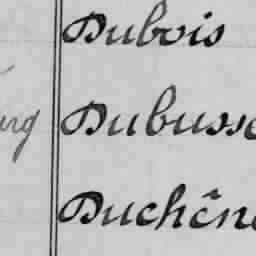 Dubois
Dubusse
Duchêne